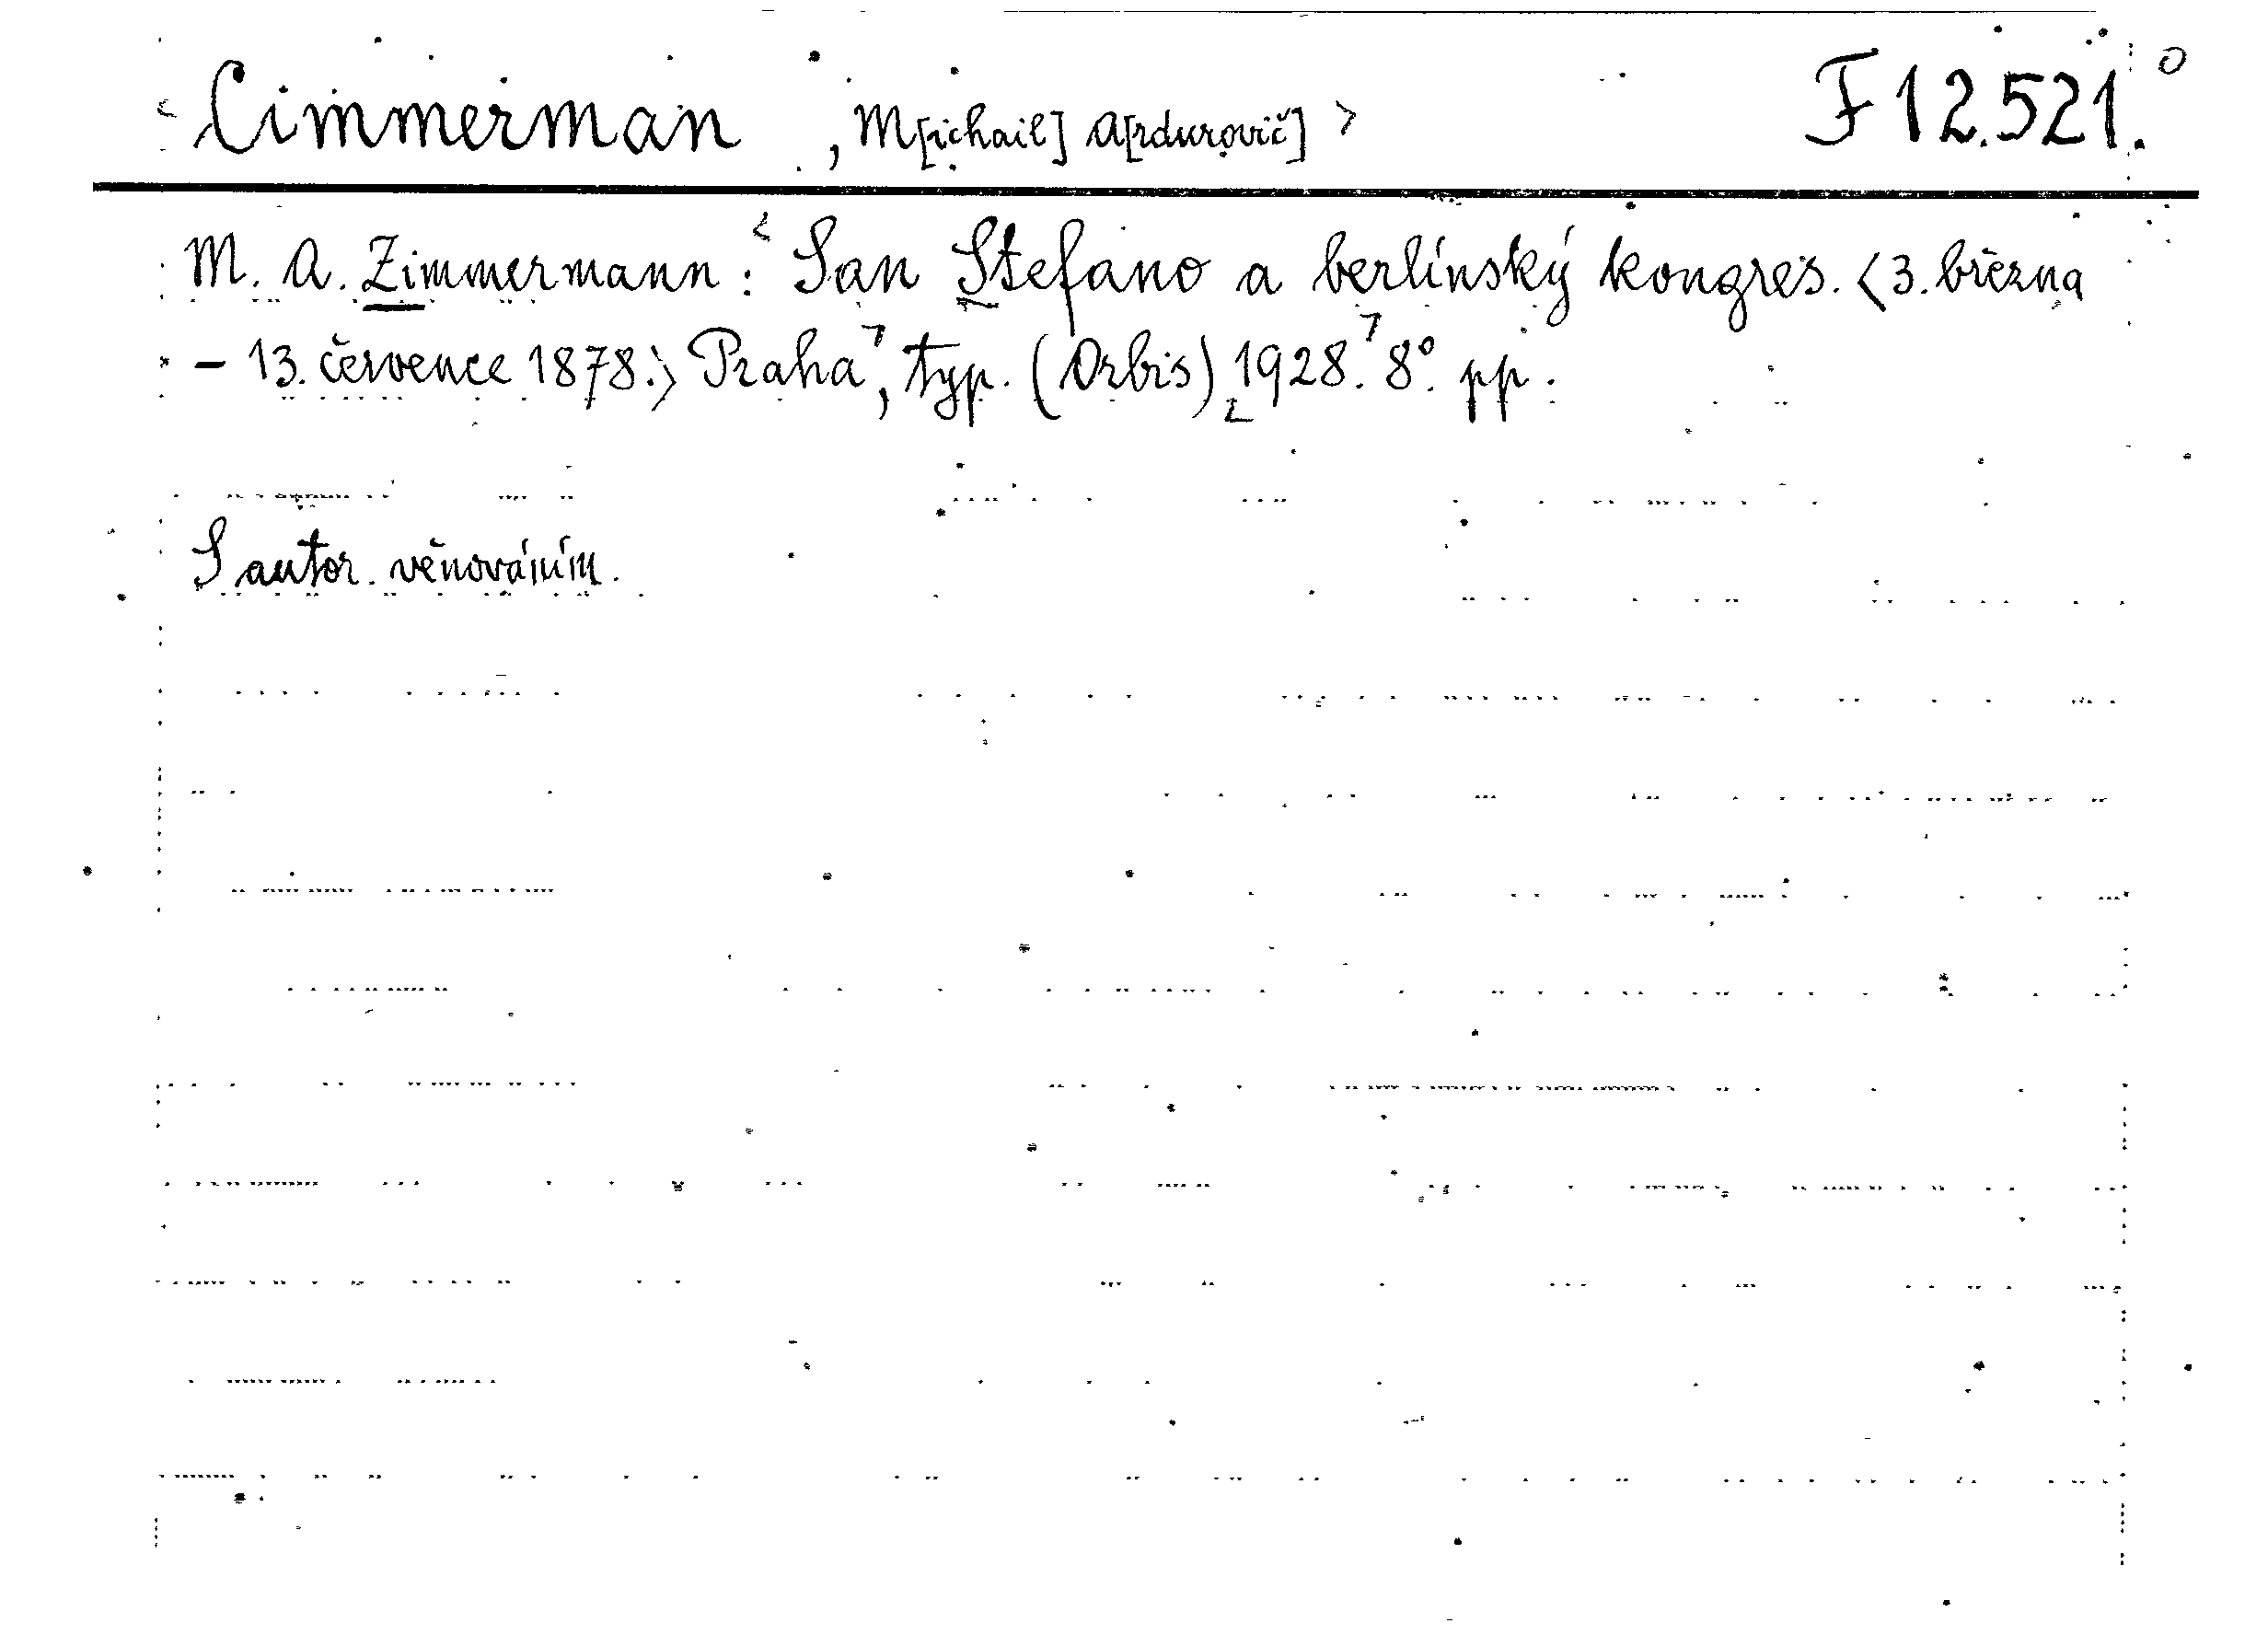 Cimmerman, M[ichail] A[rdurovič] F 12.521.
M. A. Zimmermann: San Stefano a berlínský kongres. <3. března
– 13. července 1878.> Praha, typ. (Orbis) 1928. 8°. pp.
S autor. věnováním.